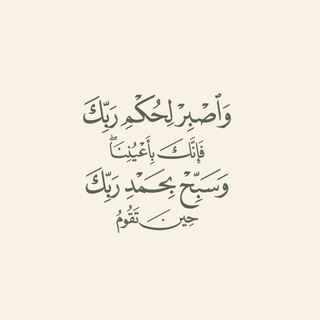 وَٱصْبِرْ لِحُكْمِ رَبِّكَ
فَإِنَّكَ بِأَعْيُنِنَاۖ
وَسَبِّحْ بِحَمْدِ رَبِّكَ
حِينَ تَقُومُ